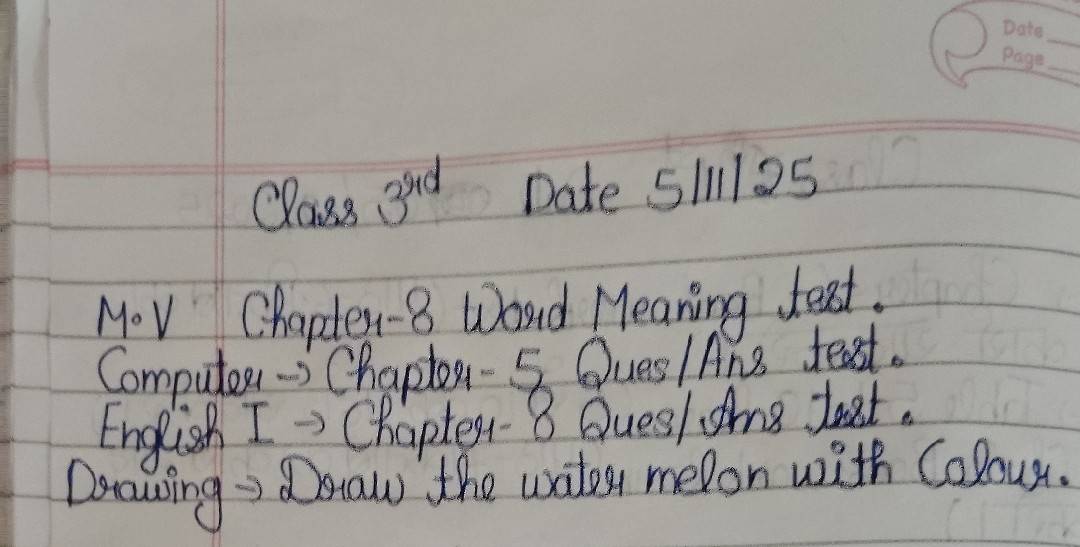 Date
Page
Class 3rd Date 5/11/25
M.V Chapter-8 Word Meaning test.
Computer → Chapter-5 Ques/Ans test.
English I → Chapter-8 Ques/Ans test.
Drawing → Draw the water melon with Colour.